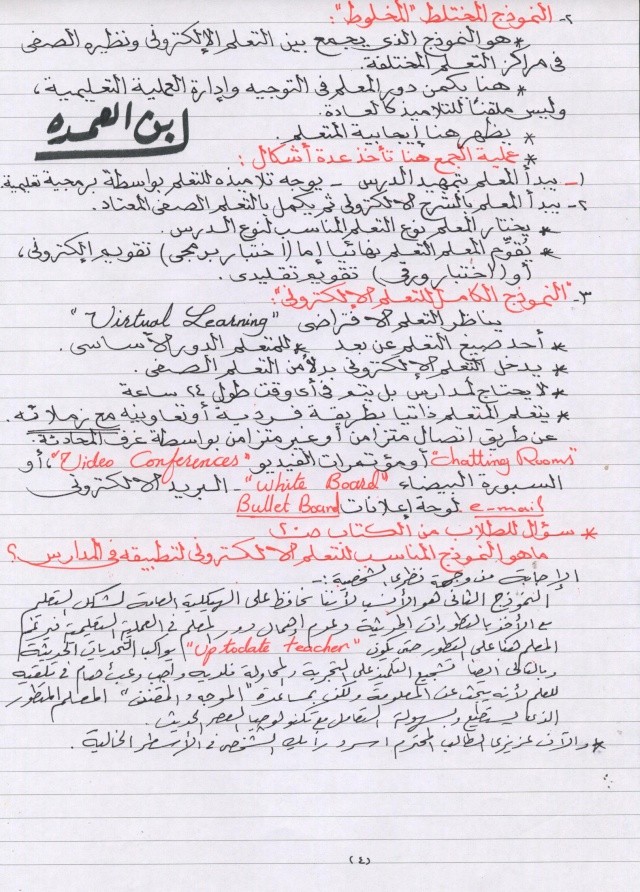 ٢- النموذج المختلط "المخلوط":
* هو النموذج الذى يجمع بين التعلم الإلكترونى ونظيره الصفى
فى مراكز التعلم المختلفة.
* هنا يكمن دور المعلم فى التوجيه وإدارة العملية التعليمية،
وليس ملقنًا للتلاميذ كالعادة.
* يظهر هنا إيجابية المتعلم.
ابن العمده
* عملية الجمع هنا تأخذ عدة أشكال:
١- يبدأ المعلم بتمهيد الدرس - يوجه تلاميذه للتعلم بواسطة برمجية تعليمية.
٢- يبدأ المعلم بالشرح الالكترونى ثم يكمل بالتعلم الصفى المعتاد.
* يختار المعلم نوع التعلم المناسب لنوع الدرس.
* يُقوِّم المعلم التعلم نهائيا إما (اختبار برمجى) تقويم إلكترونى،
أو (اختبار ورقى) تقويم تقليدى.
٣- "النموذج الكامل للتعلم الإلكترونى":
يناظر التعلم الافتراضى "Virtual Learning"
* أحد صيغ التعلم عن بعد * للمتعلم الدور الأساسى.
* يدخل التعلم الإلكترونى بدلاً من التعلم الصفى.
* لا يحتاج لمدارس بل يتم فى أى وقت طول ٢٤ ساعة
* يتعلم المتعلم ذاتيا بطريقة فردية أو تعاونية مع زملائه.
عن طريق اتصال متزامن أو غير متزامن بواسطة غرف المحادثة
"Chatting Rooms" أو مؤتمرات الفيديو "Video Conferences"، أو
السبورة البيضاء "White Board" - البريد الالكترونى
e-mail لوحة إعلانات Bullet Board
* سؤال للطلاب من الكتاب ص٢٠
ما هو النموذج المناسب للتعلم الالكترونى لتطبيقه فى المدارس؟
الإجابة من وجهة نظرى الشخصية:-
النموذج الثانى هو الأنسب لأننا نحافظ على الهيكلية العامة لشكل التعلم
مع الأخذ بالتطورات الحديثة وعدم إهمال دور المعلم فى العملية التعليمية
المعلم هنا على التطور حتى يكون "Up to date teacher" يواكب التحديات الحديثة
وبالتالى أيضا تشجيع التلميذ على التجربة والمحاولة
للعلم لأنه يبحث عن المعلومة ولكن بمساعدة "الموجه والمقنن" المعلم المتطور
الذى يستطيع وبسهولة التعامل مع تكنولوجيا العصر الحديث.
* والآن عزيزى الطالب المحترم اسرد رأيك الشخصى فى الأسطر الخالية.
(٤)